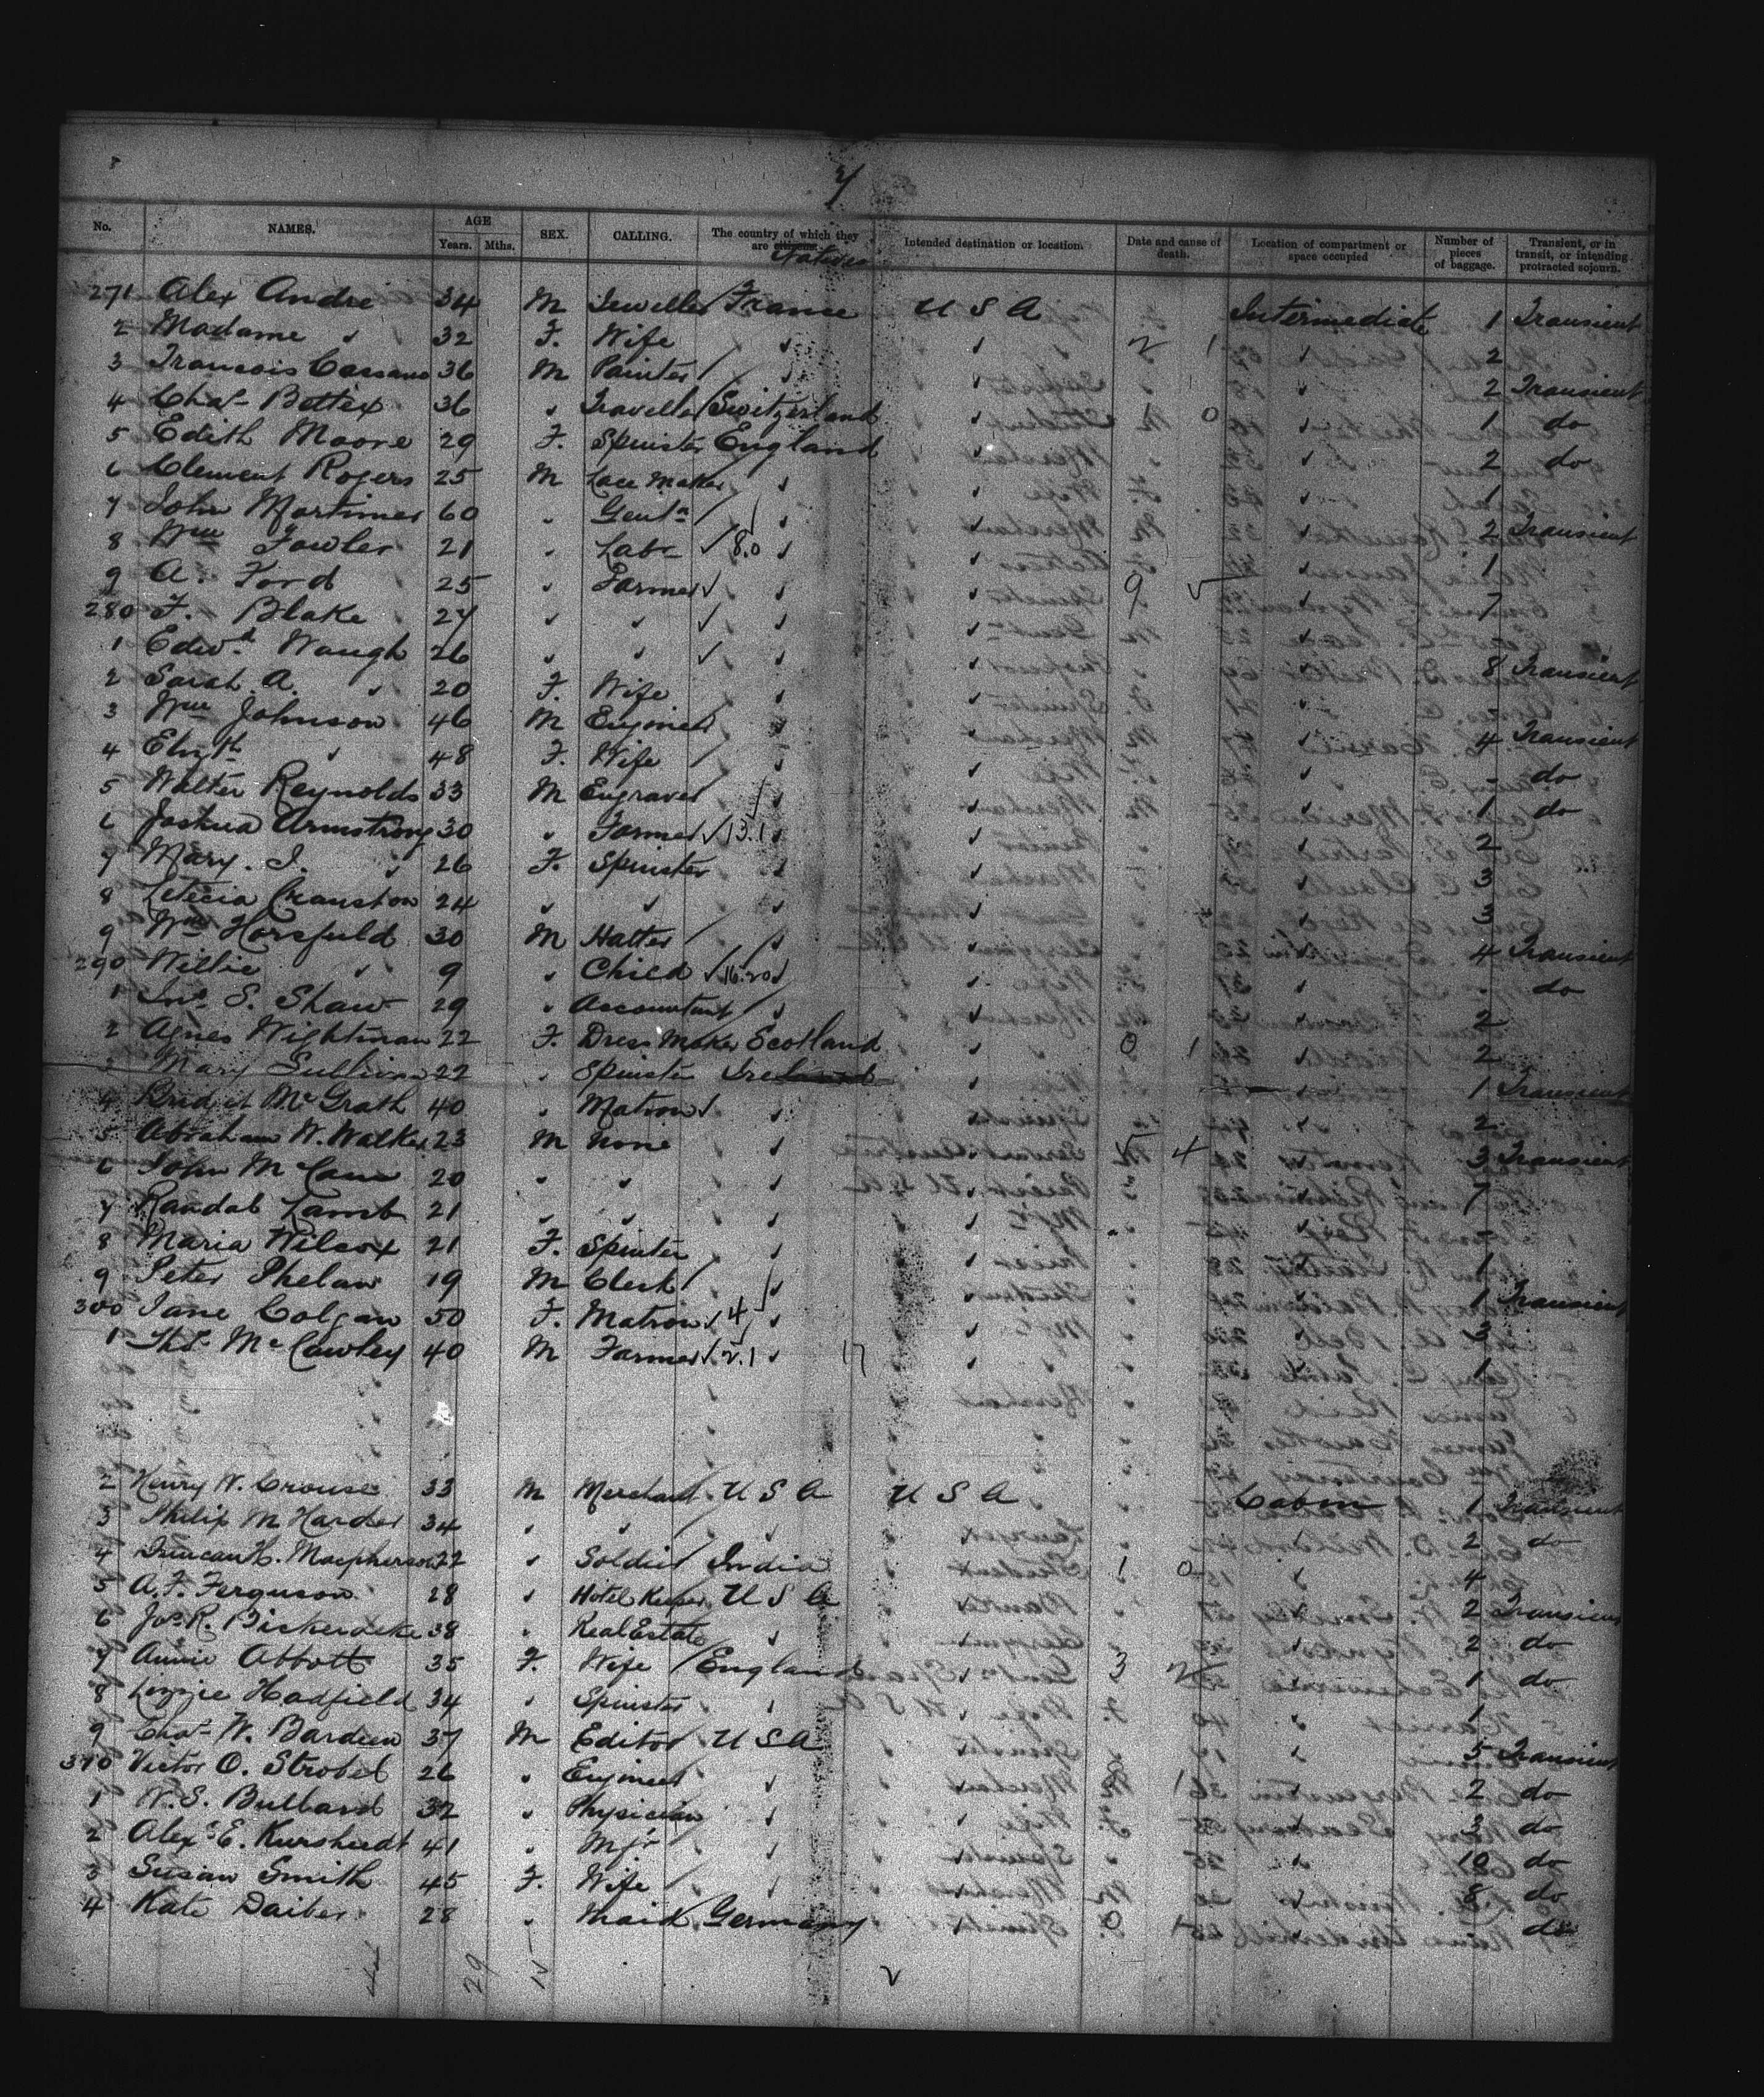 7
No. NAMES. AGE Years. Mths. SEX. CALLING. The country of which they are citizens. Natives Intended destination or location. Date and cause of death. Location of compartment or space occupied Number of pieces of baggage. Transient, or in transit, or intending protracted sojourn.
271 Alex Andre 34 M Jeweller France U S A Intermediate 1 Transient
2 Madame " 32 F. Wife " " 2 1 " 2
3 Francois Cassano 36 M Painter " " " 2 Transient
4 Chas Bettex 36 " Traveller Switzerland " 1 0 " 1 do
5 Edith Moore 29 F. Spinster England " " 2 do
6 Clement Rogers 25 M Lace Maker " " " 1
7 John Mortimer 60 " Gentn " " " 2 Transient
8 Wm Fowler 21 " Labr 8.0 " " " 1
9 A. Ford 25 " Farmer " " 9 " 7
280 F. Blake 27 " " " " "
1 Edwd Waugh 26 " " " " " 8 Transient
2 Sarah A. " 20 F. Wife " " " -
3 Wm Johnson 46 M Engineer " " " 4 Transient
4 Elizth " 48 F. Wife " " " - do
5 Walter Reynolds 33 M Engraver " " " 1 do
6 Joshua Armstrong 30 " Farmer 13.1 " " " 2
7 Mary. J. " 26 F. Spinster " " " 3
8 Letecia Cranston 24 " " " " " 3
9 Wm Horsfield 30 M Hatter " " " 4 Transient
290 Willie " 9 " Child 16.20 " " " - do
1 Jno S. Shaw 29 " Accountant " " " 2
2 Agnes Wightman 22 F. Dress Maker Scotland " 0 1 " 2
3 Mary Sullivan 22 " Spinster Ireland " " 1 Transient
4 Bridget McGrath 40 " Matron " " " 2
5 Abraham W. Walker 23 M None " " 5 4 " 3 Transient
6 John McCann 20 " " " " " 7
7 Randal Lamb 21 " " " " " -
8 Maria Wilcox 21 F. Spinster " " " 1
9 Peter Phelan 19 M Clerk " " " 1 Transient
300 Jane Colgan 50 F. Matron 4 " " " 3
1 Thos McCawley 40 M Farmer 2.1 " 17 " " 1
2 Henry W. Crouse 33 M Merchant U S A U S A Cabin 1 Transient
3 Philip M Harder 34 " " " " " 2 do
4 Duncan H. Macpherson 22 " Soldier India " 1 0 " 4
5 A. F. Ferguson 28 " Hotel Keeper U S A " " 2 Transient
6 Jos R. Bickerdike 38 " Real Estate " " " 2 do
7 Annie Abbott 35 F. Wife England " 3 2 " 1 do
8 Lizzie Hadfield 34 " Spinster " " " 1
9 Chas W. Bardeen 37 M Editor U S A " " 5 Transient
310 Victor O. Strobel 26 " Engineer " " " 2 do
1 W. S. Bullard 32 " Physician " " " 3 do
2 Alexr E. Kursheedt 41 " Mfr " " " 10 do
3 Susan Smith 45 F. Wife " " " 8 do
4 Kate Daiber 28 " Maid Germany " 0. do
29